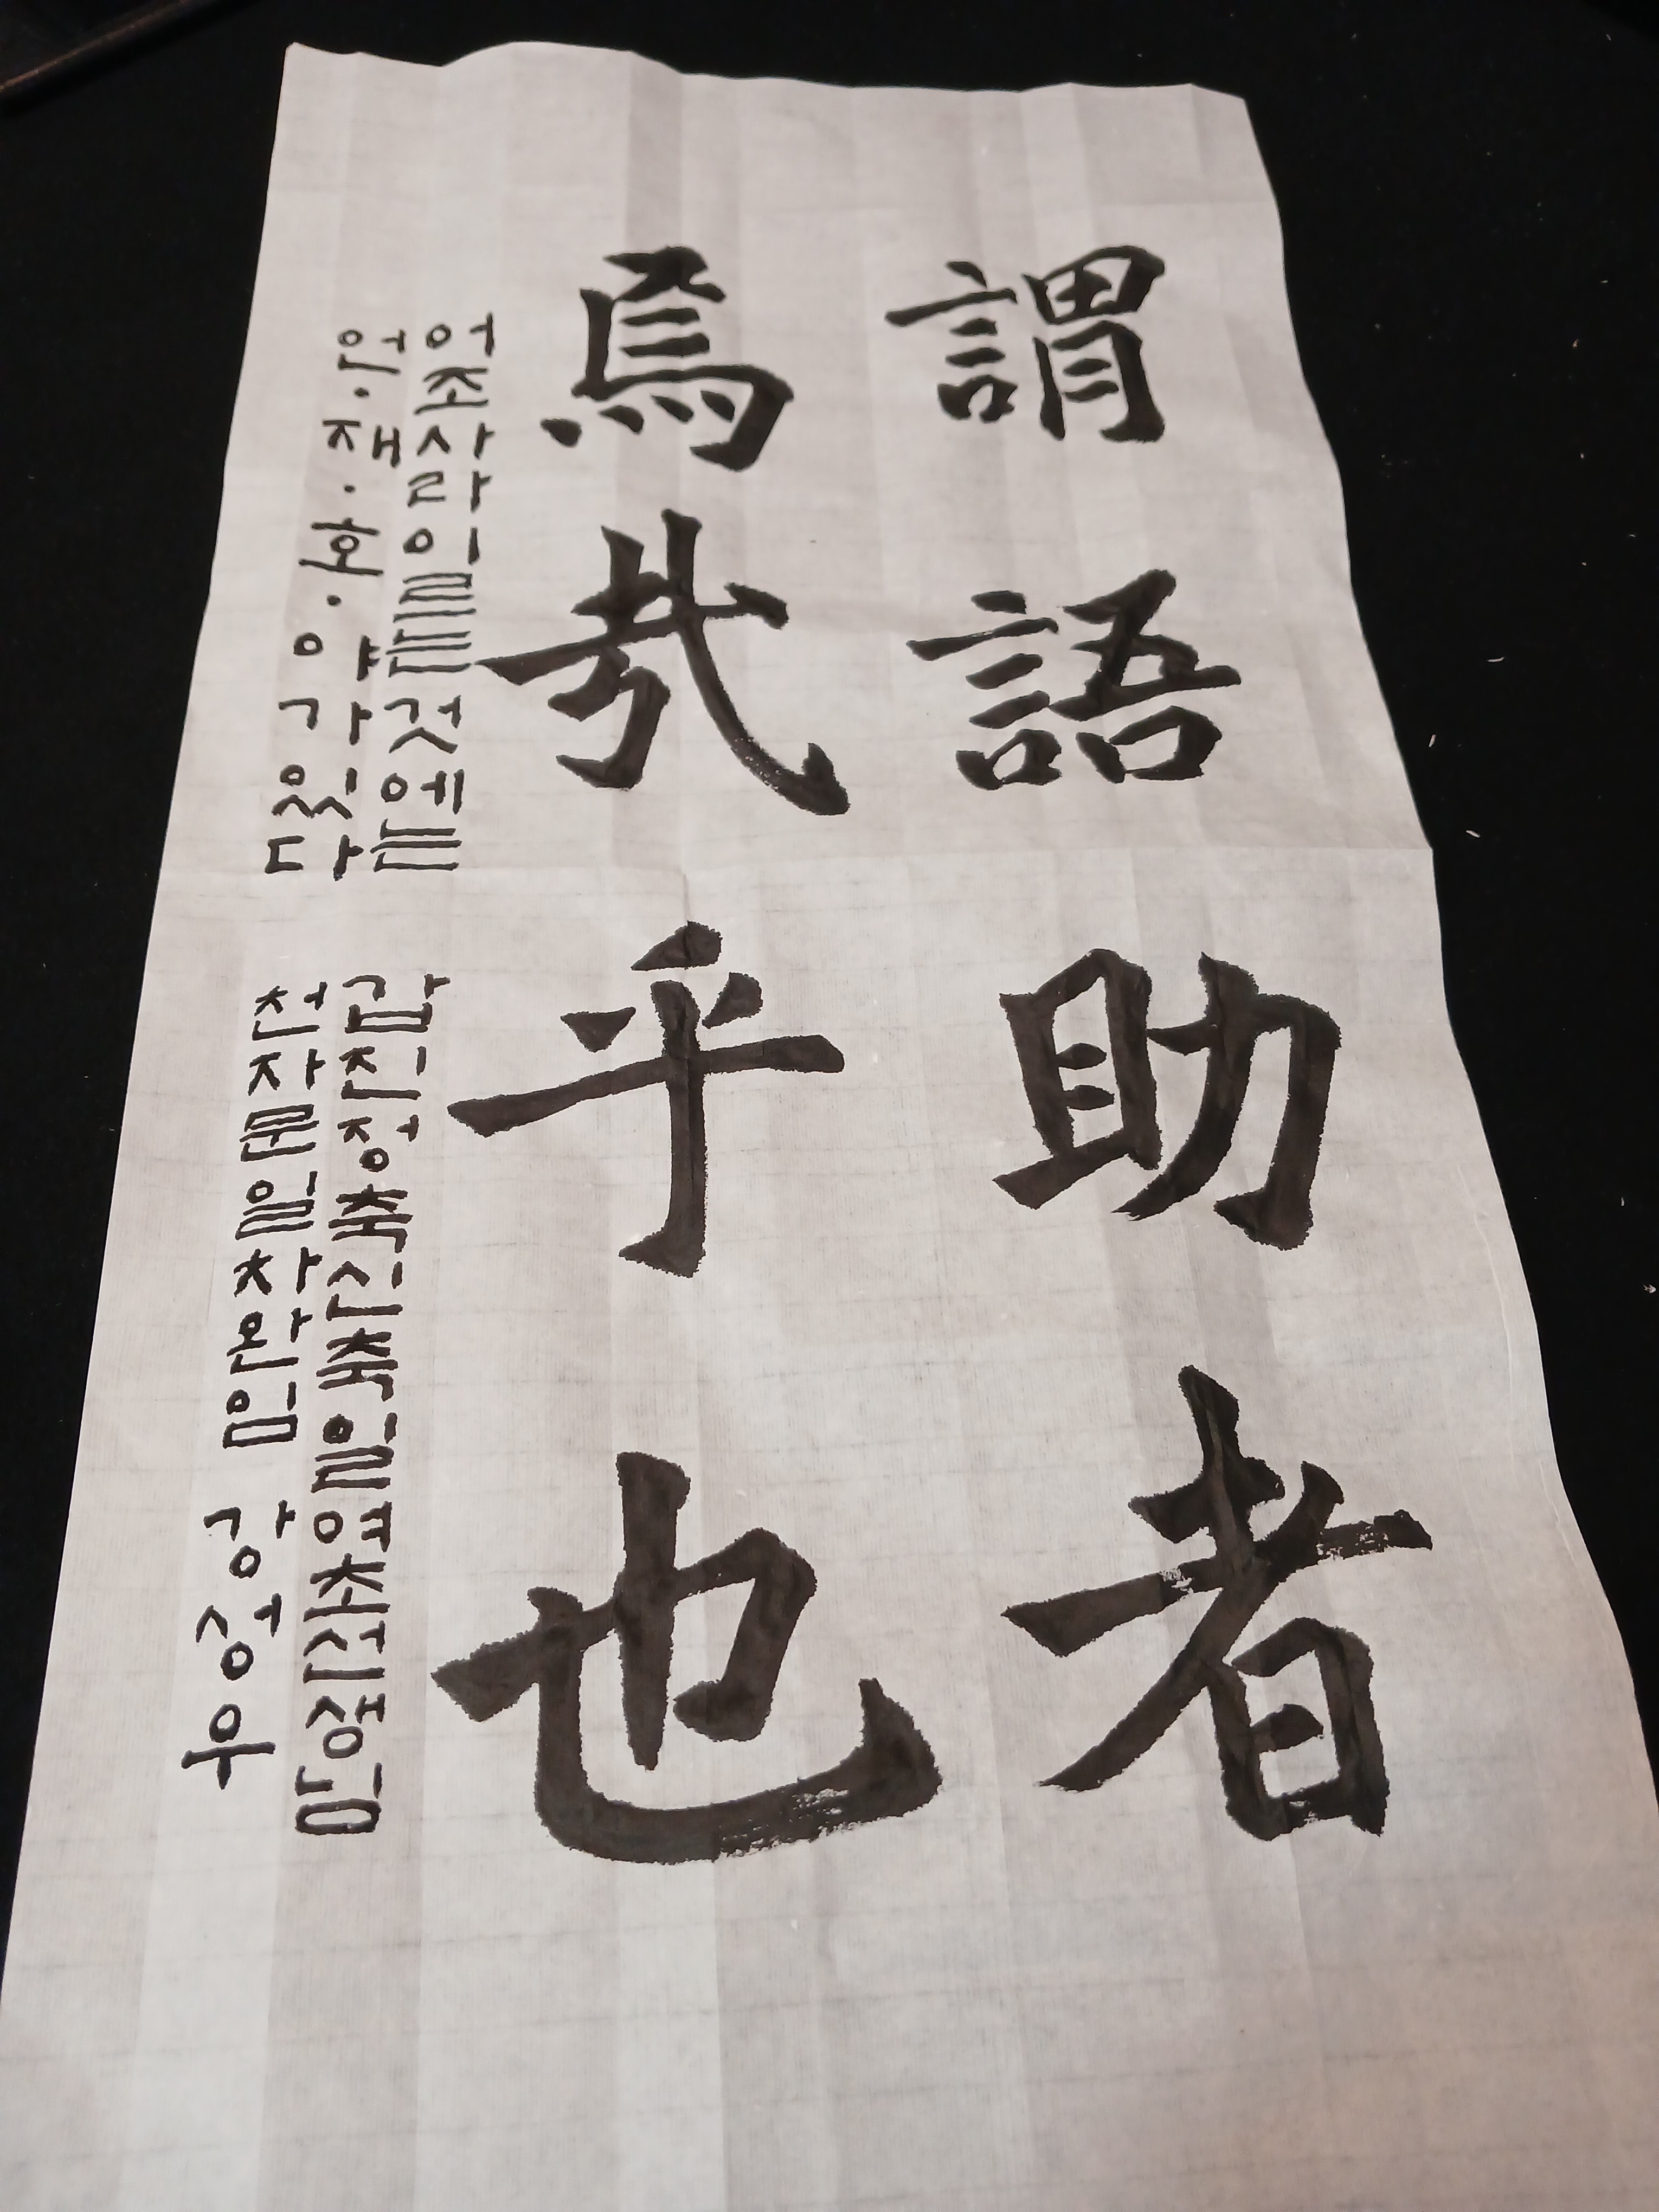 謂語助者
焉哉乎也
어조사라이르는것에는
언·재·호·야가있다
갑진정축신축일여초선생님
천자문일차완임 강성우